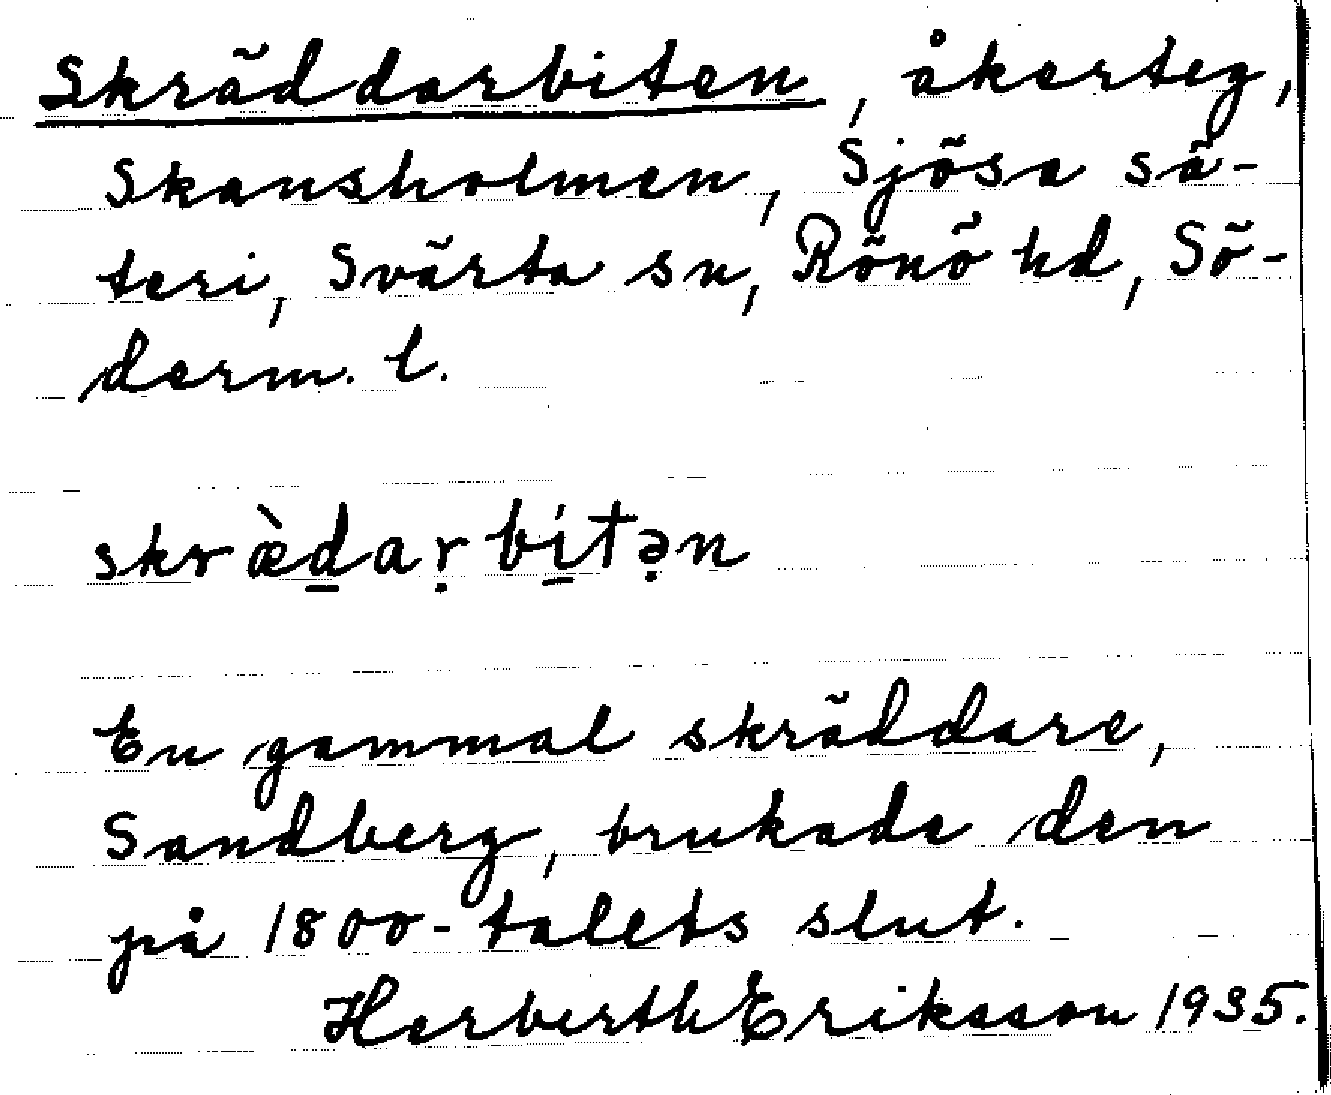 Skräddarbiten, åkerteg,
Skansholmen, Sjösa sä-
teri, Svärta sn, Rönö hd, Sö-
derm. l.
skræ̀d̲aṛbí̲tə̣n
En gammal skräddare,
Sandberg, brukade den
på 1800-talets slut.
Herberth Eriksson 1935.